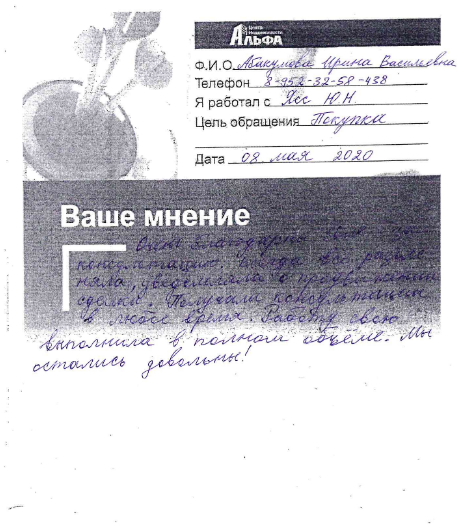 Центр
Недвижимости
АЛЬФА
Ф.И.О. Абакумова Ирина Васильевна
Телефон 8-952-32-58-438
Я работал с Хес Ю.Н.
Цель обращения Покупка
Дата 08 мая 2020
Ваше мнение
Очень благодарна за
консультацию. Всегда все разъяс
няла, уведомляла о продвижении
сделки. Получали консультации
в любое время. Работу свою
выполнила в полном объёме. Мы
остались довольны!